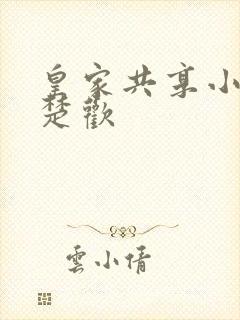 皇家共享小
楚歡
雲小倩